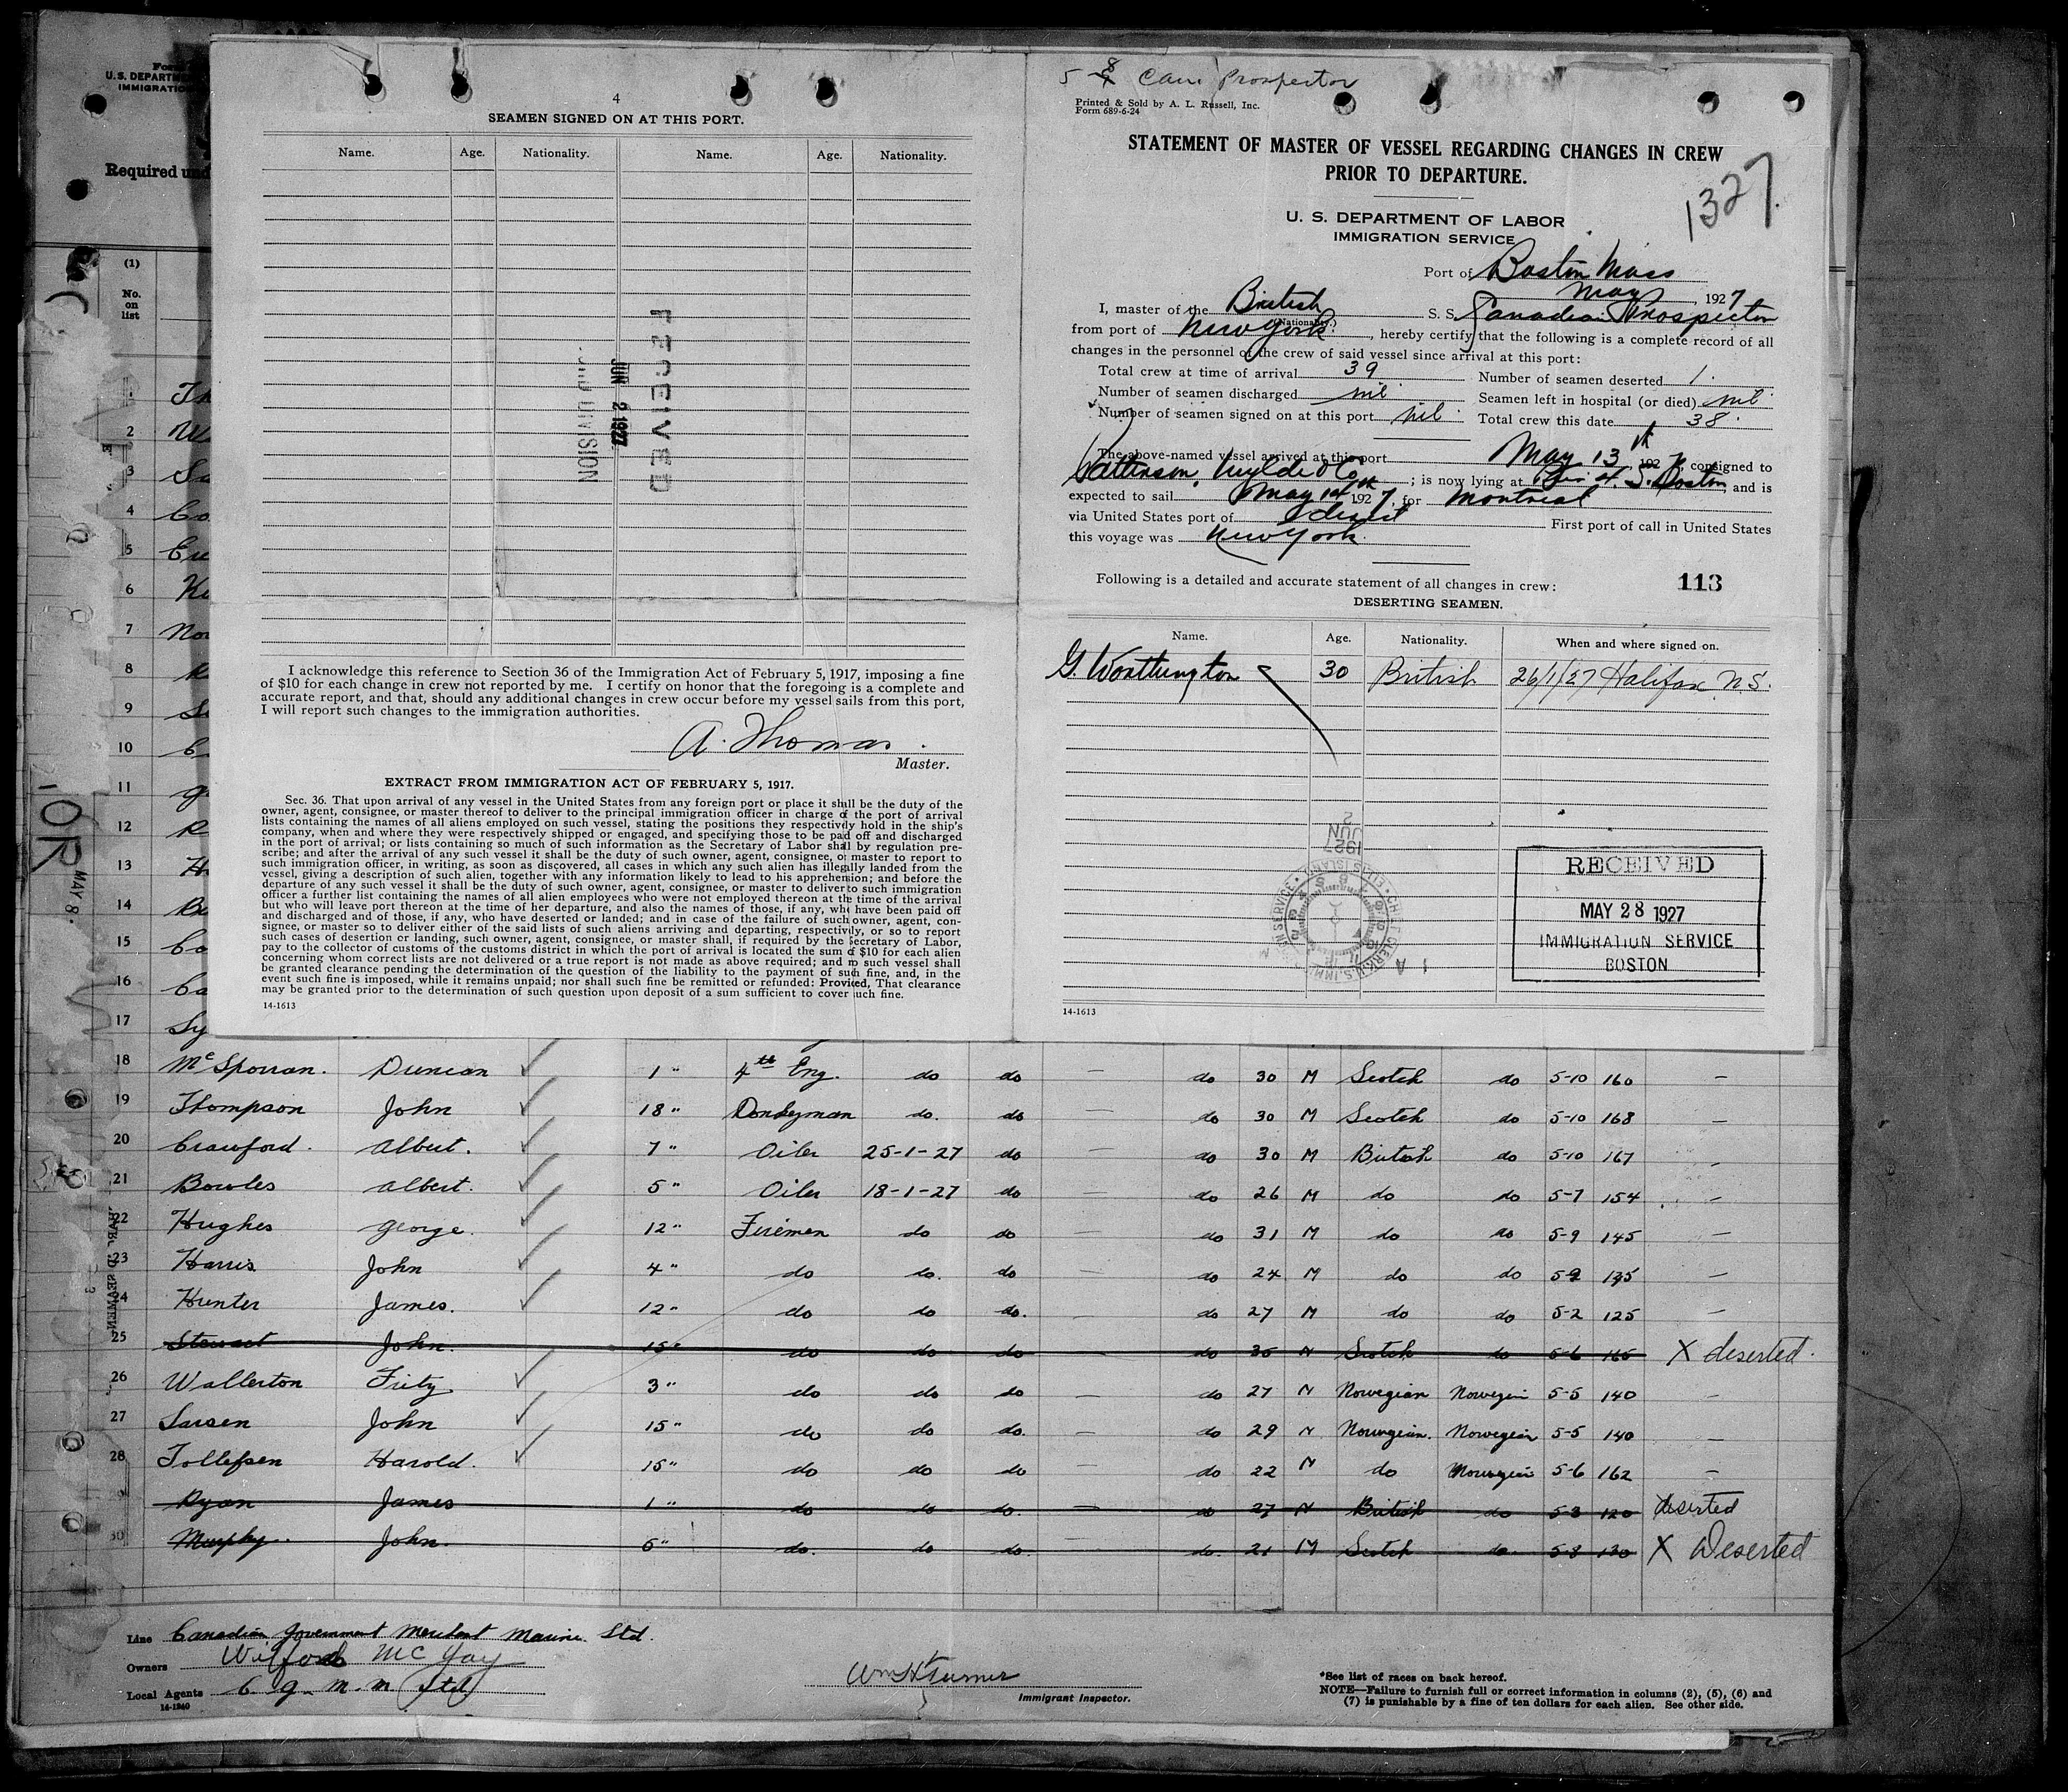 Form
U.S. DEPARTM
IMMIGRATIO
Required und
(1)
No.
on
list
4
SEAMEN SIGNED ON AT THIS PORT.
Name. Age. Nationality. Name. Age. Nationality.
RECEIVED
JUN 2 1927
DIVISION
I acknowledge this reference to Section 36 of the Immigration Act of February 5, 1917, imposing a fine
of $10 for each change in crew not reported by me. I certify on honor that the foregoing is a complete and
accurate report, and that, should any additional changes in crew occur before my vessel sails from this port,
I will report such changes to the immigration authorities.
A. Thomas.
Master.
EXTRACT FROM IMMIGRATION ACT OF FEBRUARY 5, 1917.
Sec. 36. That upon arrival of any vessel in the United States from any foreign port or place it shall be the duty of the
owner, agent, consignee, or master thereof to deliver to the principal immigration officer in charge of the port of arrival
lists containing the names of all aliens employed on such vessel, stating the positions they respectively hold in the ship's
company, when and where they were respectively shipped or engaged, and specifying those to be paid off and discharged
in the port of arrival; or lists containing so much of such information as the Secretary of Labor shall by regulation pre-
scribe; and after the arrival of any such vessel it shall be the duty of such owner, agent, consignee, or master to report to
such immigration officer, in writing, as soon as discovered, all cases in which any such alien has illegally landed from the
vessel, giving a description of such alien, together with any information likely to lead to his apprehension; and before the
departure of any such vessel it shall be the duty of such owner, agent, consignee, or master to deliver to such immigration
officer a further list containing the names of all alien employees who were not employed thereon at the time of the arrival
but who will leave port thereon at the time of her departure, and also the names of those, if any, who have been paid off
and discharged and of those, if any, who have deserted or landed; and in case of the failure of such owner, agent, con-
signee, or master so to deliver either of the said lists of such aliens arriving and departing, respectively, or so to report
such cases of desertion or landing, such owner, agent, consignee, or master shall, if required by the Secretary of Labor,
pay to the collector of customs of the customs district in which the port of arrival is located the sum of $10 for each alien
concerning whom correct lists are not delivered or a true report is not made as above required; and no such vessel shall
be granted clearance pending the determination of the question of the liability to the payment of such fine, and, in the
event such fine is imposed, while it remains unpaid; nor shall such fine be remitted or refunded: Provided, That clearance
may be granted prior to the determination of such question upon deposit of a sum sufficient to cover such fine.
14-1613
5 8 Can Prospector
Printed & Sold by A. L. Russell, Inc.
Form 689-6-24
STATEMENT OF MASTER OF VESSEL REGARDING CHANGES IN CREW
PRIOR TO DEPARTURE.
1327.
U. S. DEPARTMENT OF LABOR
IMMIGRATION SERVICE
Port of Boston Mass
May, 1927
I, master of the British S. S. Canadian Prospector
(Nationality.)
from port of New York, hereby certify that the following is a complete record of all
changes in the personnel of the crew of said vessel since arrival at this port:
Total crew at time of arrival 39 Number of seamen deserted 1.
Number of seamen discharged nil Seamen left in hospital (or died) nil
Number of seamen signed on at this port nil. Total crew this date 38.
The above-named vessel arrived at this port May 13th, 1927, consigned to
Patterson, Wylde & Co; is now lying at Pier 4. S. Boston, and is
expected to sail May 14th 1927, for Montreal
via United States port of direct First port of call in United States
this voyage was New York.
Following is a detailed and accurate statement of all changes in crew: 113
DESERTING SEAMEN.
Name. Age. Nationality. When and where signed on.
G. Worthington 30 British 26/1/27 Halifax N.S.
1927
JUN
2
RECEIVED
MAY 28 1927
IMMIGRATION SERVICE
BOSTON
14-1613
MAY 8
18 McSporran. Duncan 1 " 4th Eng. do do — do 30 M Scotch do 5-10 160 —
19 Thompson John 18 " Donkeyman do. do do 30 M Scotch do 5-10 168 —
20 Crawford. Albert. 7 " Oiler 25-1-27 do do 30 M British do 5-10 167 -
21 Bowles Albert. 5 " Oiler 18-1-27 do — do 26 M do do 5-7 154 -
22 Hughes George. 12 " Firemen do do — do 31 M do do 5-9 145 —
23 Harris John 4 " do do. do — do 24 M do do 5-2 135 —
24 Hunter James. 12 " do do do. — do 27 M do do 5-2 125 —
25 Stewart John. 15 " do do do do 35 M Scotch do 5-6 165 X deserted.
26 Wallerton Fritz 3 " do do do — do 27 M Norwegian Norwegian 5-5 140 -
27 Larsen John 15 " do do do. — do 29 M Norwegian. Norwegian 5-5 140 —
28 Tollefsen Harold. 15 " do do do — do 22 M do Norwegian 5-6 162 —
29 Ryan James 1 " do do do. — do 27 M British do 5-3 120 X deserted
30 Murphy. John. 6 " do. do do. — do. 21 M Scotch do. 5-8 130 X Deserted
Line Canadian Government Merchant Marine Ltd.
Owners Wilford McKay
Local Agents C. G. M. M. Ltd
14-1240
Wm H Turner
Immigrant Inspector.
*See list of races on back hereof.
NOTE—Failure to furnish full or correct information in columns (2), (5), (6) and
(7) is punishable by a fine of ten dollars for each alien. See other side.